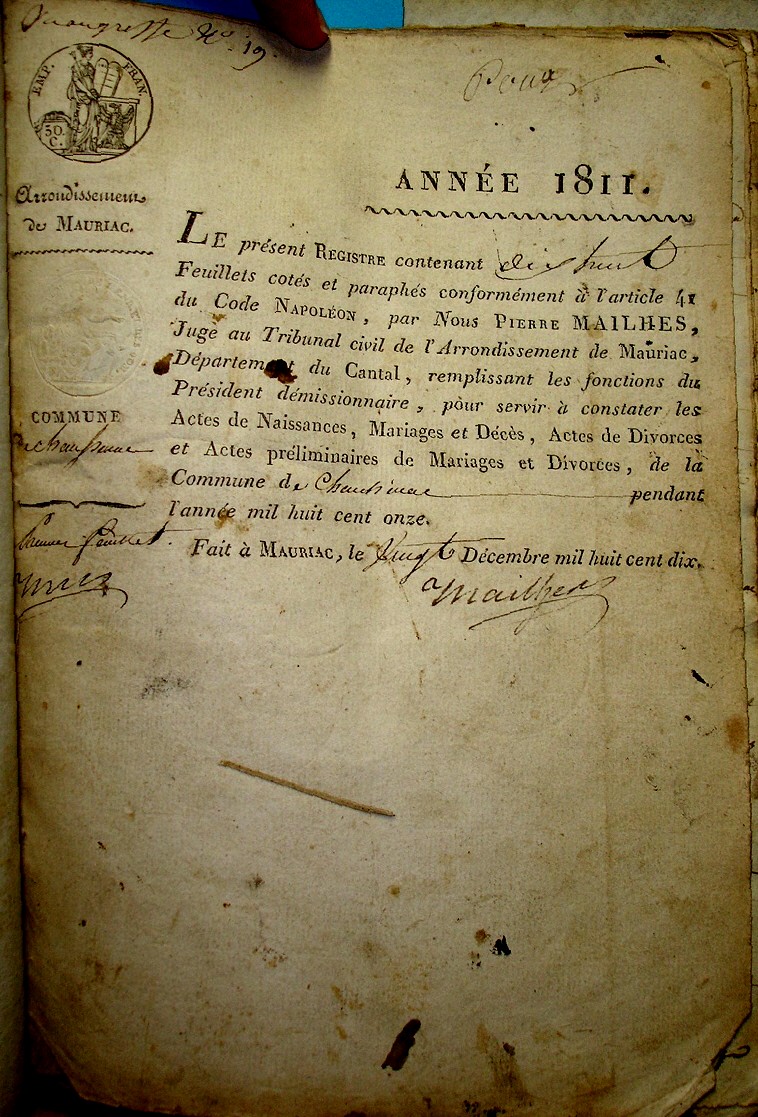 N.º 19
EMP. FRAN.
30.
C.
Arrondissement
de MAURIAC.
COMMUNE
de Chaussenac
premier feuillet.
ANNÉE 1811.
LE présent REGISTRE contenant dix huit
Feuillets cotés et paraphés conformément à l'article 41
du Code NAPOLÉON, par Nous PIERRE MAILHES,
Juge au Tribunal civil de l'Arrondissement de Mauriac,
Département du Cantal, remplissant les fonctions du
Président démissionnaire, pour servir à constater les
Actes de Naissances, Mariages et Décès, Actes de Divorces
et Actes préliminaires de Mariages et Divorces, de la
Commune de Chaussenac pendant
l'année mil huit cent onze.
Fait à MAURIAC, le vingt Décembre mil huit cent dix.
Mailhes